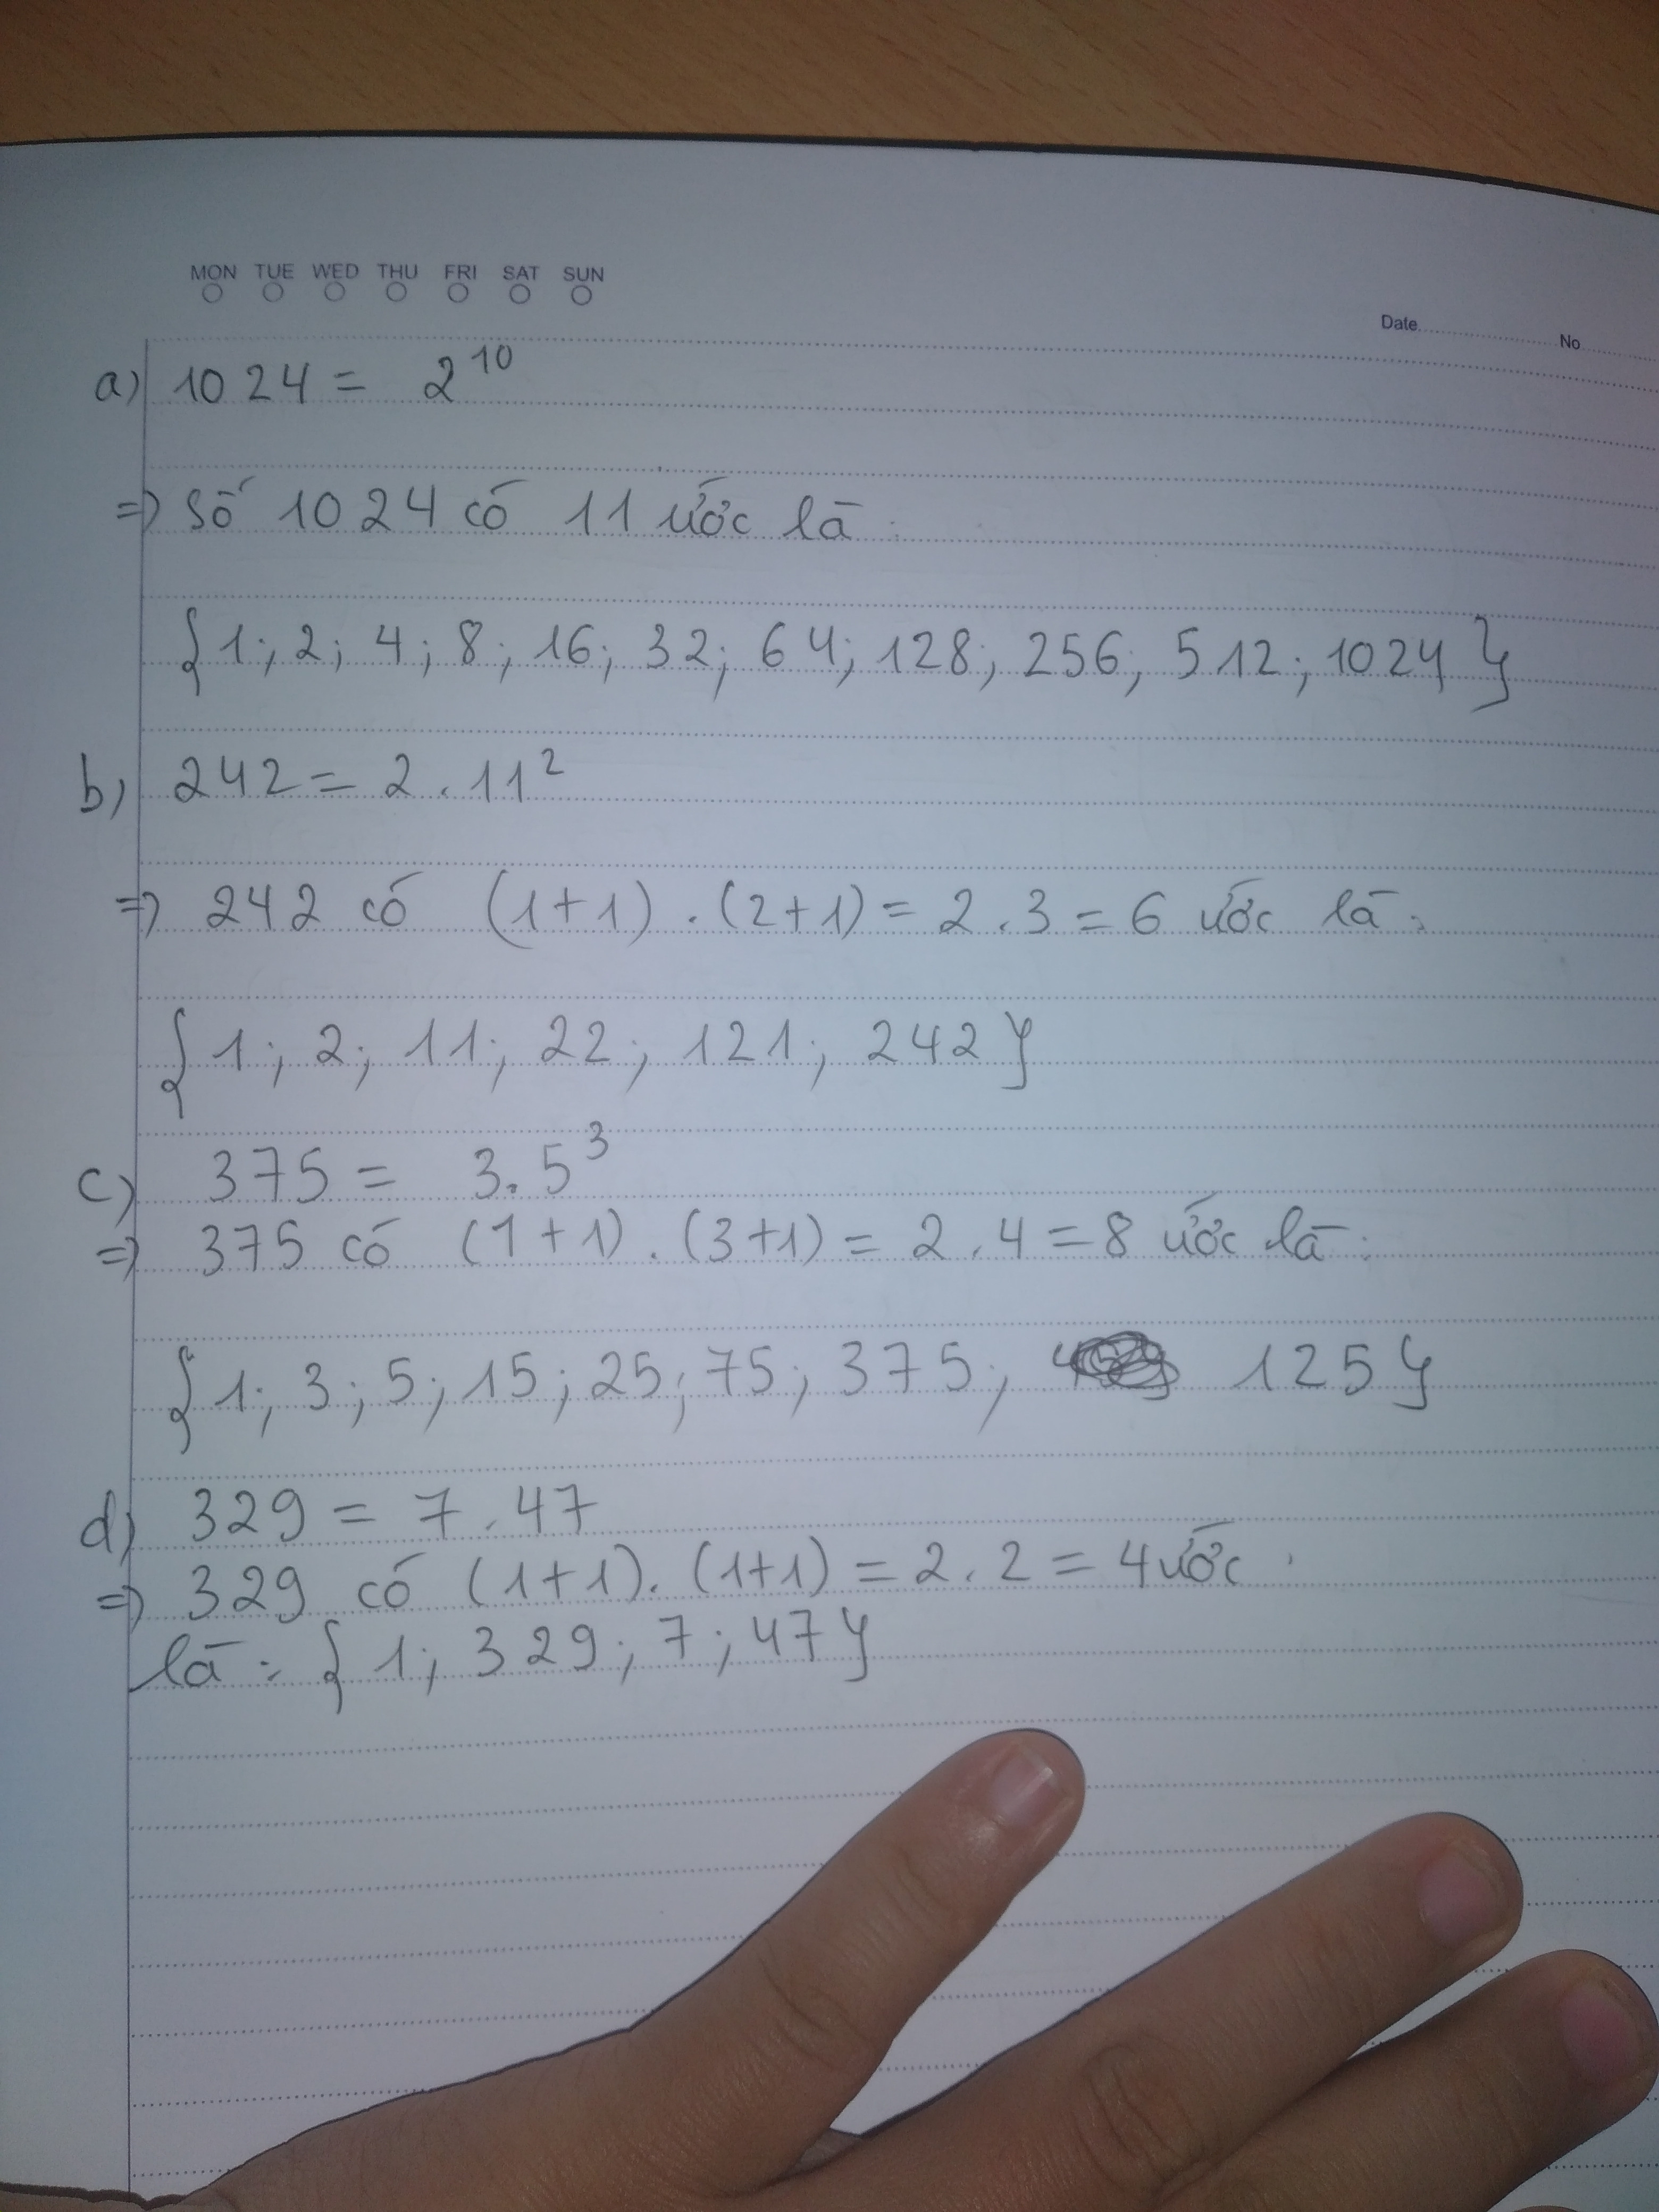 MON TUE WED THU FRI SAT SUN
Date No
a) 1024 = 2¹⁰
=) Số 1024 có 11 ước là:
{1; 2; 4; 8; 16; 32; 64; 128; 256; 512; 1024}
b) 242 = 2 . 11²
=) 242 có (1+1) . (2+1) = 2 . 3 = 6 ước là:
{1; 2; 11; 22; 121; 242}
c) 375 = 3. 5³
=) 375 có (1+1) . (3+1) = 2 . 4 = 8 ước là:
{1; 3; 5; 15; 25; 75; 375; 125}
d) 329 = 7 . 47
=) 329 có (1+1). (1+1) = 2. 2 = 4 ước
là: {1; 329; 7; 47}